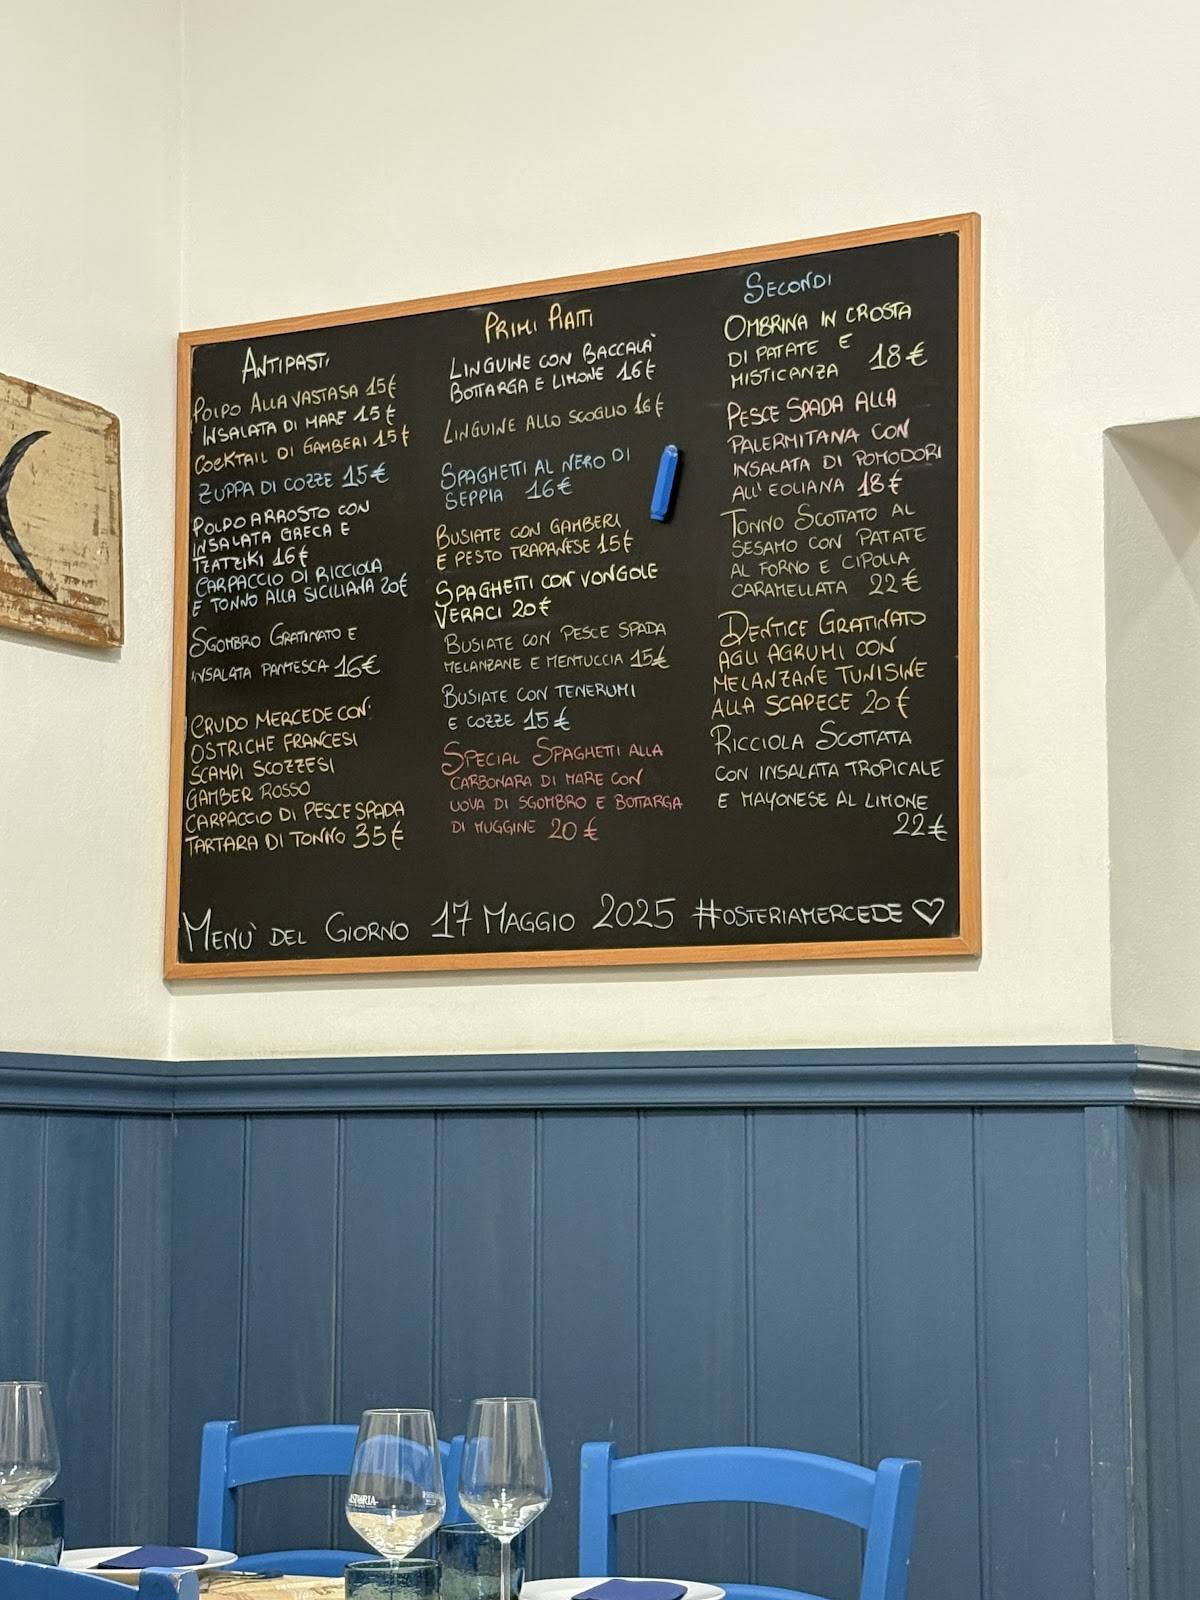 Antipasti
Polpo alla vastasa 15€
Insalata di mare 15€
Cocktail di gamberi 15€
Zuppa di cozze 15€
Polpo arrosto con
insalata greca e
tzatziki 16€
Carpaccio di ricciola
e tonno alla siciliana 20€
Sgombro gratinato e
insalata pantesca 16€
Crudo Mercede con:
ostriche francesi
scampi scozzesi
gambero rosso
carpaccio di pesce spada
tartara di tonno 35€
Primi Piatti
Linguine con baccalà
bottarga e limone 16€
Linguine allo scoglio 16€
Spaghetti al nero di
seppia 16€
Busiate con gamberi
e pesto trapanese 15€
Spaghetti con vongole
veraci 20€
Busiate con pesce spada
melanzane e mentuccia 15€
Busiate con tenerumi
e cozze 15€
Special Spaghetti alla
carbonara di mare con
uova di sgombro e bottarga
di muggine 20€
Secondi
Ombrina in crosta
di patate e
misticanza 18€
Pesce spada alla
palermitana con
insalata di pomodori
all'eoliana 18€
Tonno scottato al
sesamo con patate
al forno e cipolla
caramellata 22€
Dentice gratinato
agli agrumi con
melanzane tunisine
alla scapece 20€
Ricciola scottata
con insalata tropicale
e mayonese al limone
22€
Menù del Giorno 17 Maggio 2025 #osteriamercede ♡